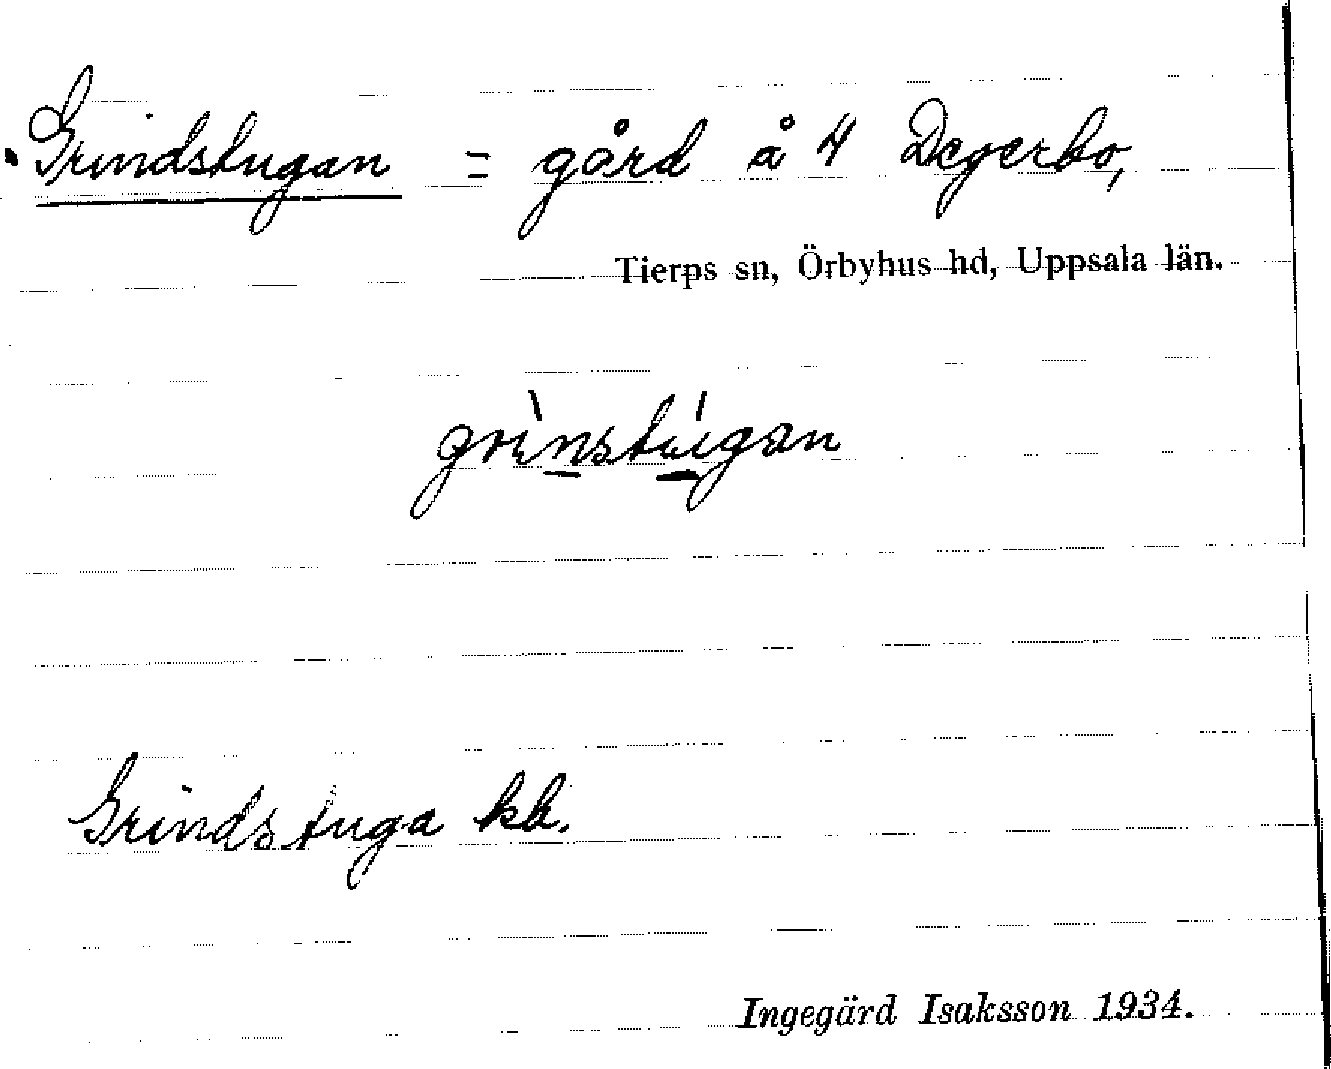 Grindstugan = gård å 4 Degerbo,
Tierps sn, Örbyhus hd, Uppsala län.
grìnstúgan
Grindstuga kb.
Ingegärd Isaksson 1934.